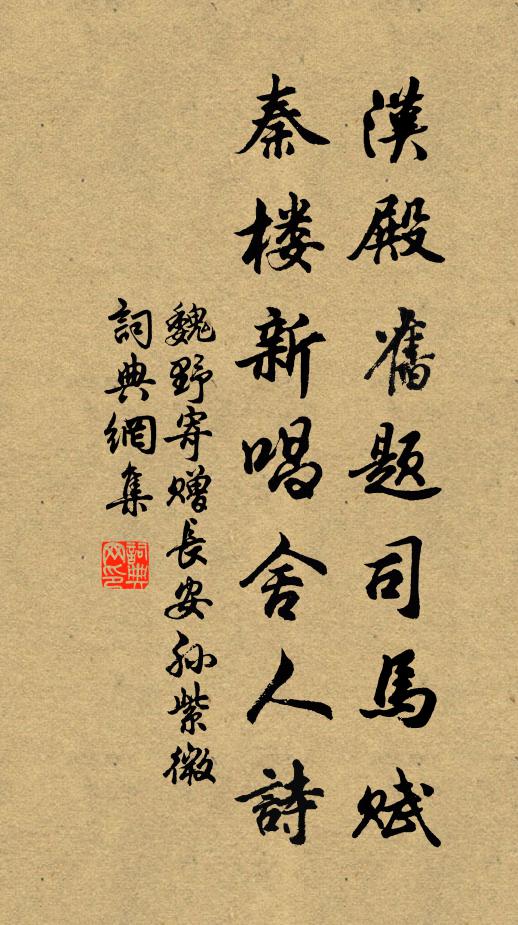 漢殿舊题司馬赋
秦楼新唱舍人詩
魏野寄赠長安孙紫微
詞典網集
詞典網印